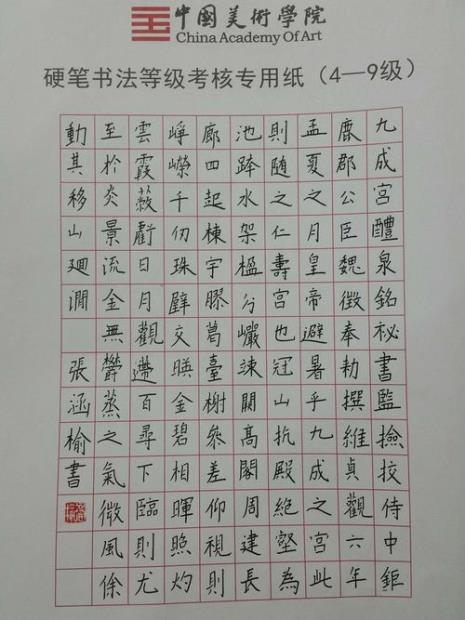 中國美術學院
China Academy Of Art
硬笔书法等级考核专用纸（4—9级）
九成宮醴泉銘祕書監撿挍侍中鉅
鹿郡公臣魏徵奉勅撰維貞觀六年
孟夏之月皇帝避暑乎九成之宮此
則随之仁壽宮也冠山抗殿絶壑為
池跨水架楹分巖竦闕高閣周建長
廊四起棟宇膠葛臺榭叅差仰視則
崢嶸千仞珠璧交暎金碧相暉照灼
雲霞蔽虧日月觀遰百尋下臨則尤
至於炎景流金無鬱蒸之氣微風徐
動其移山廻澗
張涵榆書